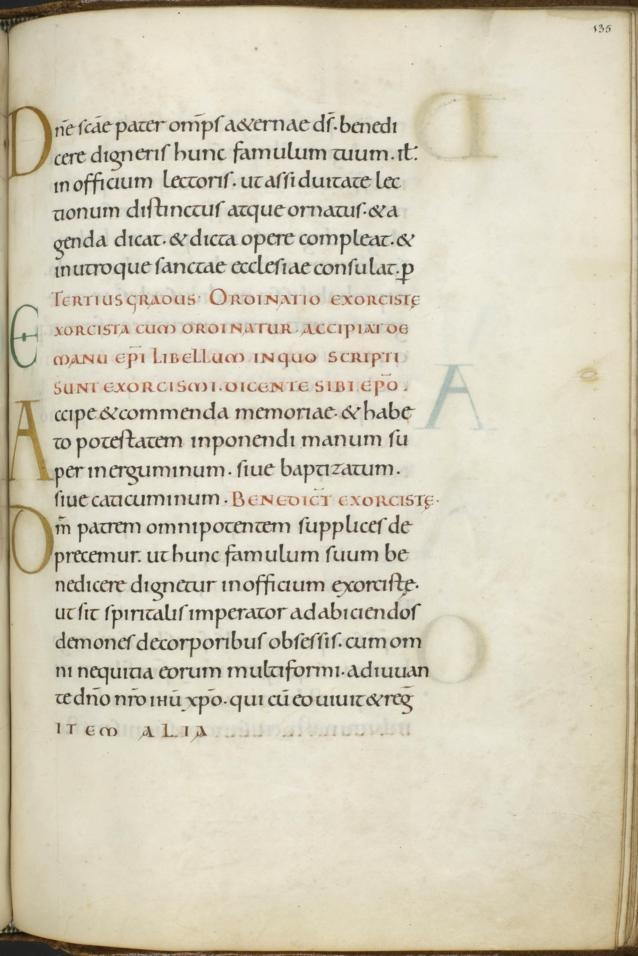 135
Dn̄e sc̄ae pater omp̄s aeternae dS̄. benedi
cere digneris hunc famulum tuum. ił:
in officium lectoris. ut assiduitate lec
tionum distinctus atque ornatus. & a
genda dicat. & dicta opere compleat. &
in utroque sanctae ecclesiae consulat. p̄
TERTIUS GRADUS ORDINATIO EXORCISTĘ
EXORCISTA CUM ORDINATUR ACCIPIAT DE
MANU EPĪ LIBELLUM IN QUO SCRIPTI
SUNT EXORCISMI. DICENTE SIBI EPŌ.
Accipe & commenda memoriae. & habe
to potestatem inponendi manum su
per inerguminum. siue baptizatum.
siue caticuminum. BENEDICT̄ EXORCISTĘ.
Dm̄ patrem omnipotentem supplices de
precemur. ut hunc famulum suum be
nedicere dignetur in officium exorcistę.
ut sit spiritalis imperator ad abiciendos
demones de corporibus obsessis. cum om
ni nequitia eorum multiformi. adiuuan
te dn̄o nr̄o ihū xp̄o. qui cū eo uiuit & reg̅
ITEM ALIA